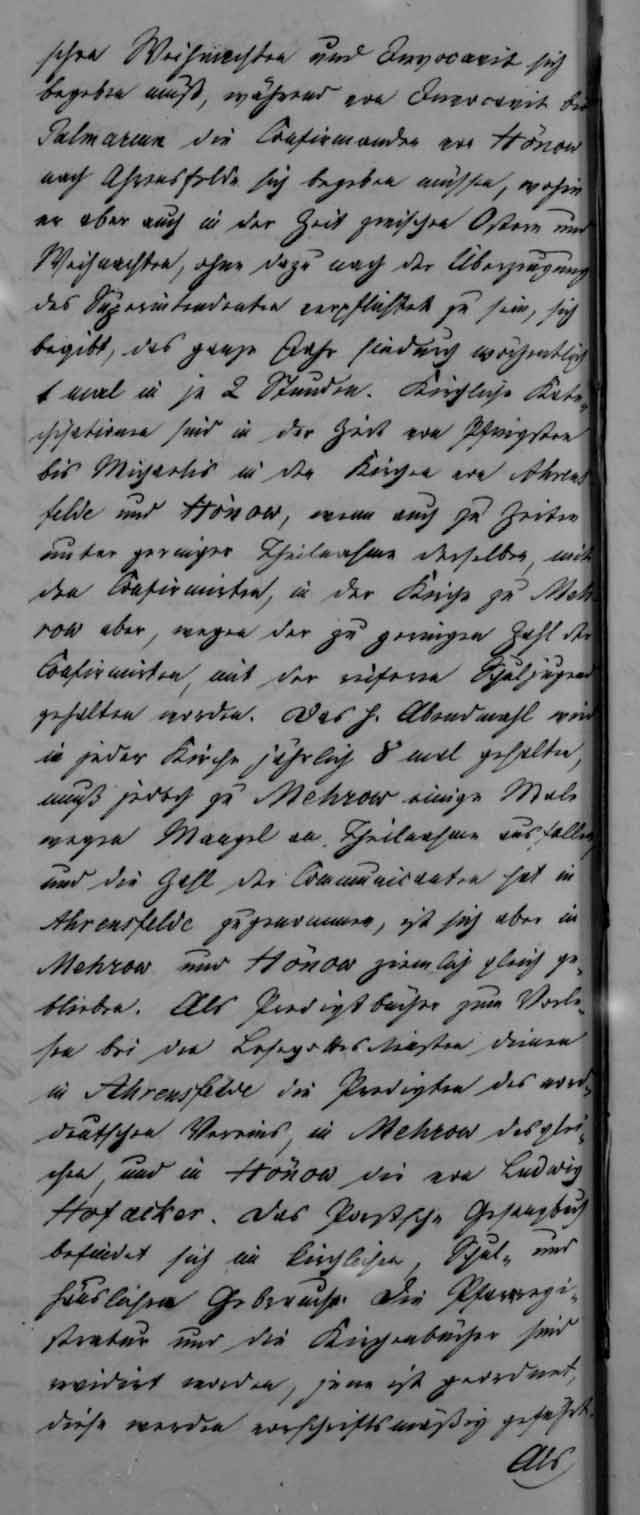 schen Weihnachten und Invocavit sich
begeben muß, während von Invocavit bis
Palmarum die Confirmanden von Hönow
nach Ahrensfelde sich begeben müssen, wohin
er aber auch in der Zeit zwischen Ostern und
Weihnachten, ohne dazu nach der Überzeugung
des Superintendenten verpflichtet zu sein, sich
begibt, das ganze Jahr hindurch wöchentlich
1 mal in je 2 Stunden. Kirchliche Kate„
chisationen sind in der Zeit von Pfingsten
bis Michaelis in den Kirchen von Ahrens
felde und Hönow, wenn auch zu Zeiten
unter geringer Theilnahme derselben, mit
den Confirmirten, in der Kirche zu Meh
row aber, wegen der zu geringen Zahl der
Confirmirten, mit der reiferen Schuljugend
gehalten worden. Das h. Abendmahl wird
in jeder Kirche jährlich 8 mal gehalten,
muß jedoch zu Mehrow einige Male
wegen Mangel an Theilnahme ausfallen,
und die Zahl der Communicanten hat in
Ahrensfelde zugenommen, ist sich aber in
Mehrow und Hönow ziemlich gleich ge„
blieben. Als Predigtbücher zum Vorle„
sen bei den Lesegottesdiensten dienen
in Ahrensfelde die Predigten des nord„
deutschen Vereins, in Mehrow desglei„
chen, und in Hönow die von Ludwig
Hofacker. Das Porstsche Gesangbuch
befindet sich im kirchlichen, Schul„ und
häuslichen Gebrauche. Die Pfarregi„
stratur und die Kirchenbücher sind
revidirt worden, jene ist geordnet,
diese werden vorschriftsmäßig geführt.
Als